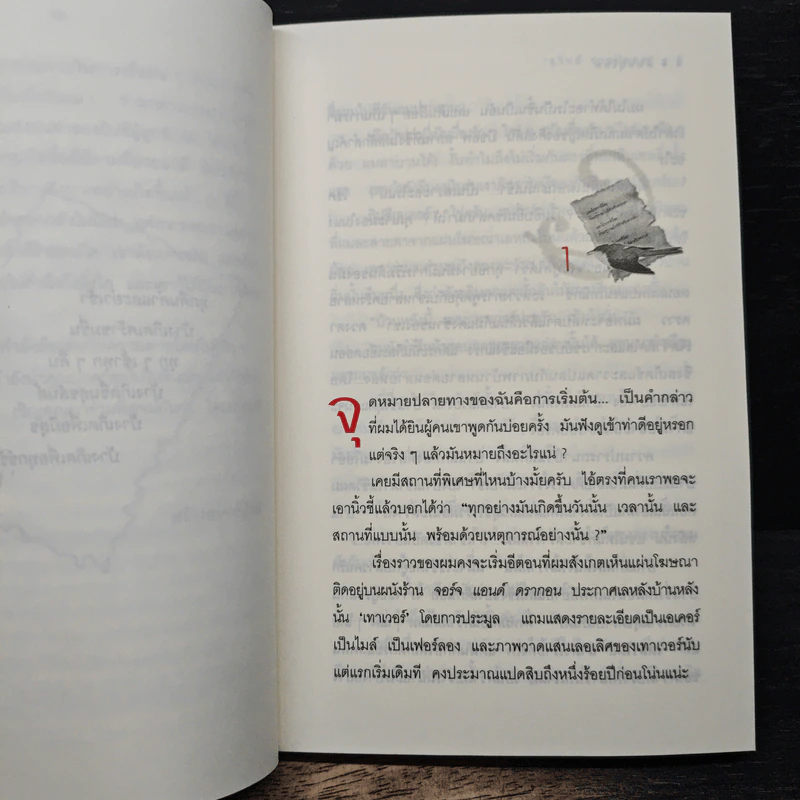 1
จุดหมายปลายทางของฉันคือการเริ่มต้น... เป็นคำกล่าว
ที่ผมได้ยินผู้คนเขาพูดกันบ่อยครั้ง มันฟังดูเข้าท่าดีอยู่หรอก
แต่จริง ๆ แล้วมันหมายถึงอะไรแน่ ?
เคยมีสถานที่พิเศษที่ไหนบ้างมั้ยครับ ไอ้ตรงที่คนเราพอจะ
เอานิ้วชี้แล้วบอกได้ว่า “ทุกอย่างมันเกิดขึ้นวันนั้น เวลานั้น และ
สถานที่แบบนั้น พร้อมด้วยเหตุการณ์อย่างนั้น ?”
เรื่องราวของผมคงจะเริ่มอีตอนที่ผมสังเกตเห็นแผ่นโฆษณา
ติดอยู่บนผนังร้าน จอร์จ แอนด์ ดรากอน ประกาศเลหลังบ้านหลัง
นั้น ‘เทาเวอร์’ โดยการประมูล แถมแสดงรายละเอียดเป็นเอเคอร์
เป็นไมล์ เป็นเฟอร์ลอง และภาพวาดแสนเลอเลิศของเทาเวอร์นับ
แต่แรกเริ่มเดิมที คงประมาณแปดสิบถึงหนึ่งร้อยปีก่อนโน่นแน่ะ